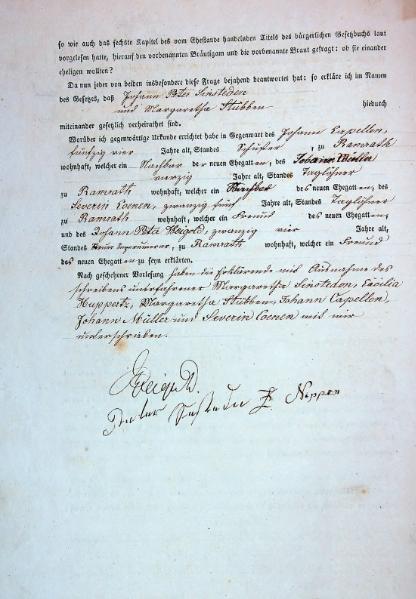 so wie auch das sechste Kapitel des vom Ehestande handelnden Titels des bürgerlichen Gesetzbuchs laut
vorgelesen hatte, hierauf den vorbenannten Bräutigam und die vorbenannte Braut gefragt: ob sie einander
ehelichen wollten?
Da nun jeder von beiden insbesondere diese Frage bejahend beantwortet hat: so erkläre ich im Namen
des Gesetzes, daß Johann Peter Sinsteden
und Margaretha Stübben hiedurch
miteinander gesetzlich verheirathet sind.
Worüber ich gegenwärtige Urkunde errichtet habe in Gegenwart des Johann Capellen,
fünfzig vier Jahre alt, Standes Schuster, zu Ramrath
wohnhaft, welcher ein Nachbar der neuen Ehegatten, des Johann Müller
vierzig Jahre alt, Standes Taglöhner
zu Ramrath wohnhaft, welcher ein Nachbar des neuen Ehegatten, des
Severin Coenen, zwanzig fünf Jahre alt, Standes Taglöhner
zu Ramrath wohnhaft, welcher ein Freund des neuen Ehegatten,
und des Johann Peter Weigold, zwanzig vier Jahre alt,
Standes zu Ramrath wohnhaft, welcher ein Freund
des neuen Ehegatten zu seyn erklärten.
Nach geschehener Vorlesung haben die Erklärende mit Ausnahme des
schreibens unerfahrener Margaretha Sinsteden, Cäcilia
Huppertz, Margaretha Stübben, Johann Capellen,
Johann Müller und Severin Coenen mit mir
unterschrieben.
Weigold.
Peter Sinsteden